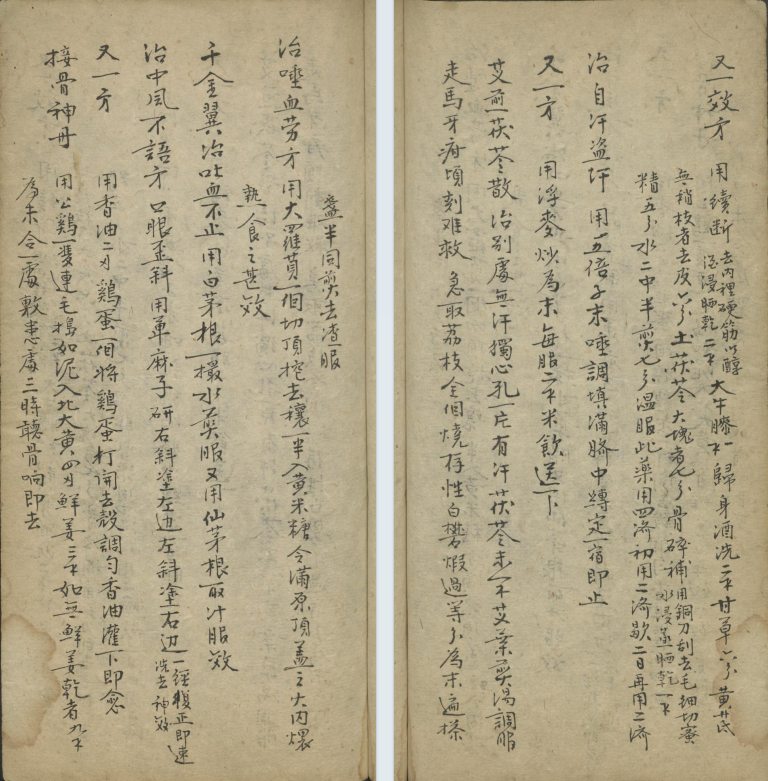 又一效方　用續斷去內裡硬筋以醇酒浸晒乾二不大牛膝一不歸身酒洗二不甘草六分黃芪
無稍枝者去皮六分土茯苓大塊者七分骨碎補用銅刀刮去毛細切蜜水浸蒸晒乾一不
精五分水二中半煎七分溫服此藥用四濟初用二濟歇二日再用二濟
治自汗盜汗　用五倍子末唾調填滿臍中縛定一宿即止
又一方　用浮麥炒為末每服二不米飲送下
艾煎茯苓散　治別處無汗獨心孔一片有汗茯苓末一不艾葉煎湯調服
走馬牙疳頃刻难救　急取荔枝全個燒存性白礬煆過等分為末遍搽
盞半同煎去渣服
治唾血劳方　用大羅蔔一個切頂挖去穰一半入黃米糖令滿原頂盖之火內煨
熟食之甚效
千金翼治吐血不止　用白茅根一撮水煎服又用仙茅根取汁服效
治中風不語方　口眼歪斜用萆麻子研右斜塗左边左斜塗右边一經復正即速洗去神效
又一方　用香油二刄鷄蛋一個將鷄蛋打開去殼調勻香油灌下即愈
接骨神丹　用公鷄一隻連毛搗如泥入北大黃四刄鮮姜三不如無鮮姜乾者九不
為末合一處敷患處三時聽骨响即去